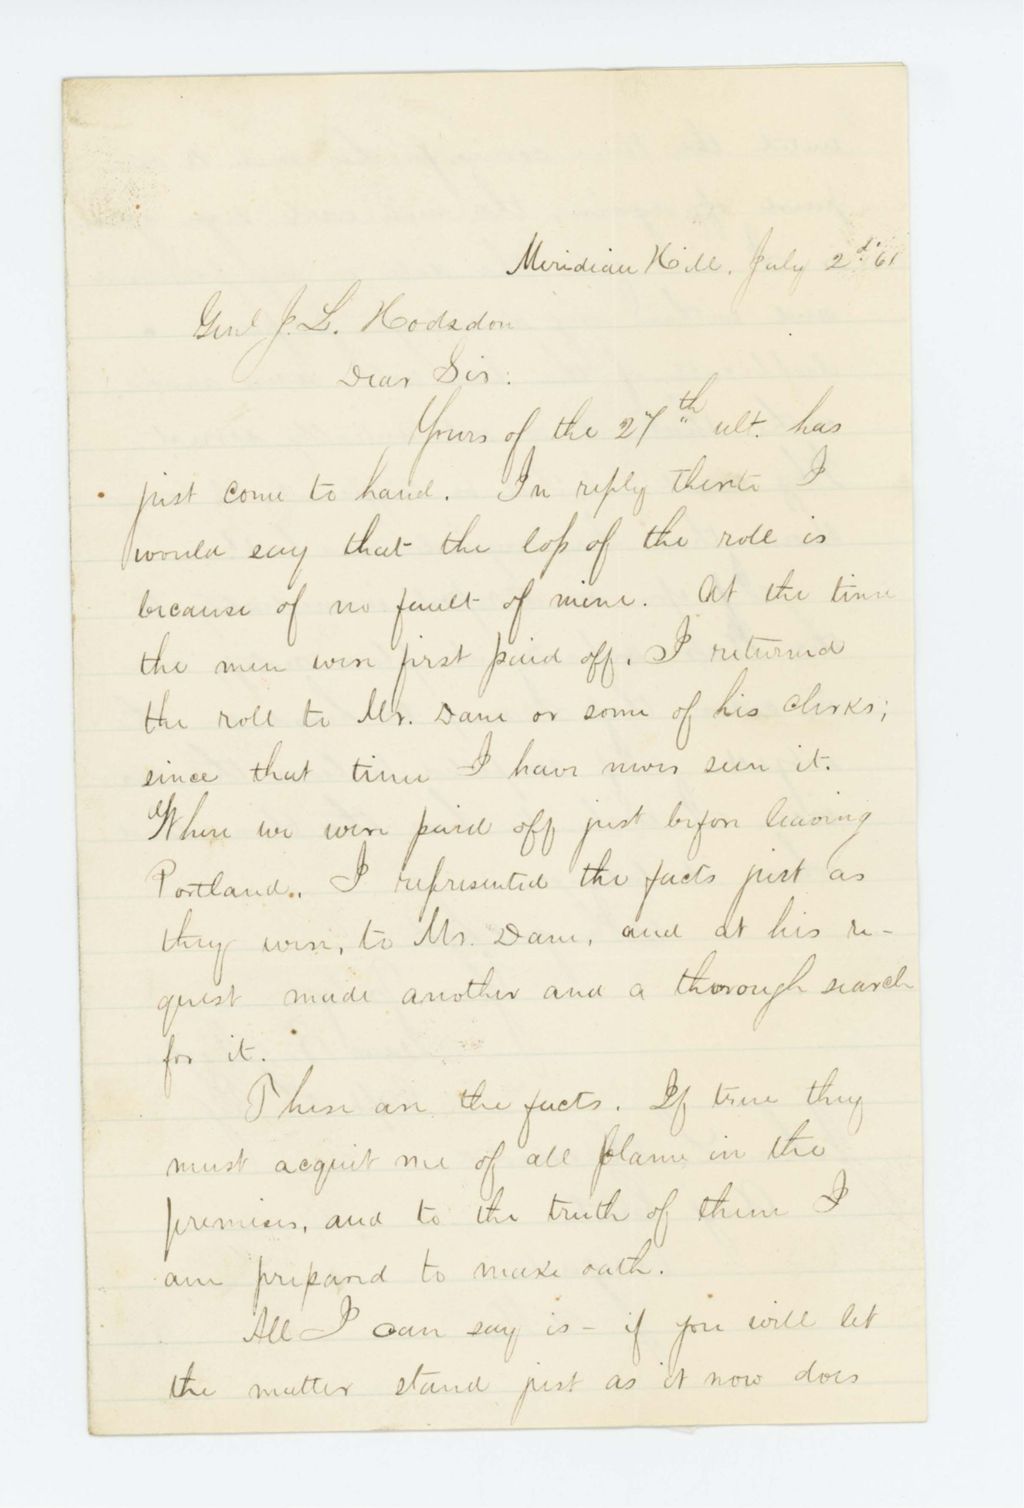 Meridian Hill, July 2d. '61
Genl J. L. Hodsdon
Dear Sir:
Yours of the 27th ult. has
just come to hand. In reply thereto I
would say that the loss of the roll is
because of no fault of mine. At the time
the men were first paid off, I returned
the roll to Mr. Dane or some of his clerks;
since that time I have never seen it.
When we were paid off just before leaving
Portland, I represented the facts just as
they were, to Mr. Dane, and at his re-
quest made another and a thorough search
for it.
These are the facts. If true they
must acquit me of all blame in the
premises, and to the truth of them I
am prepared to make oath.
All I can say is - if you will let
the matter stand just as it now does